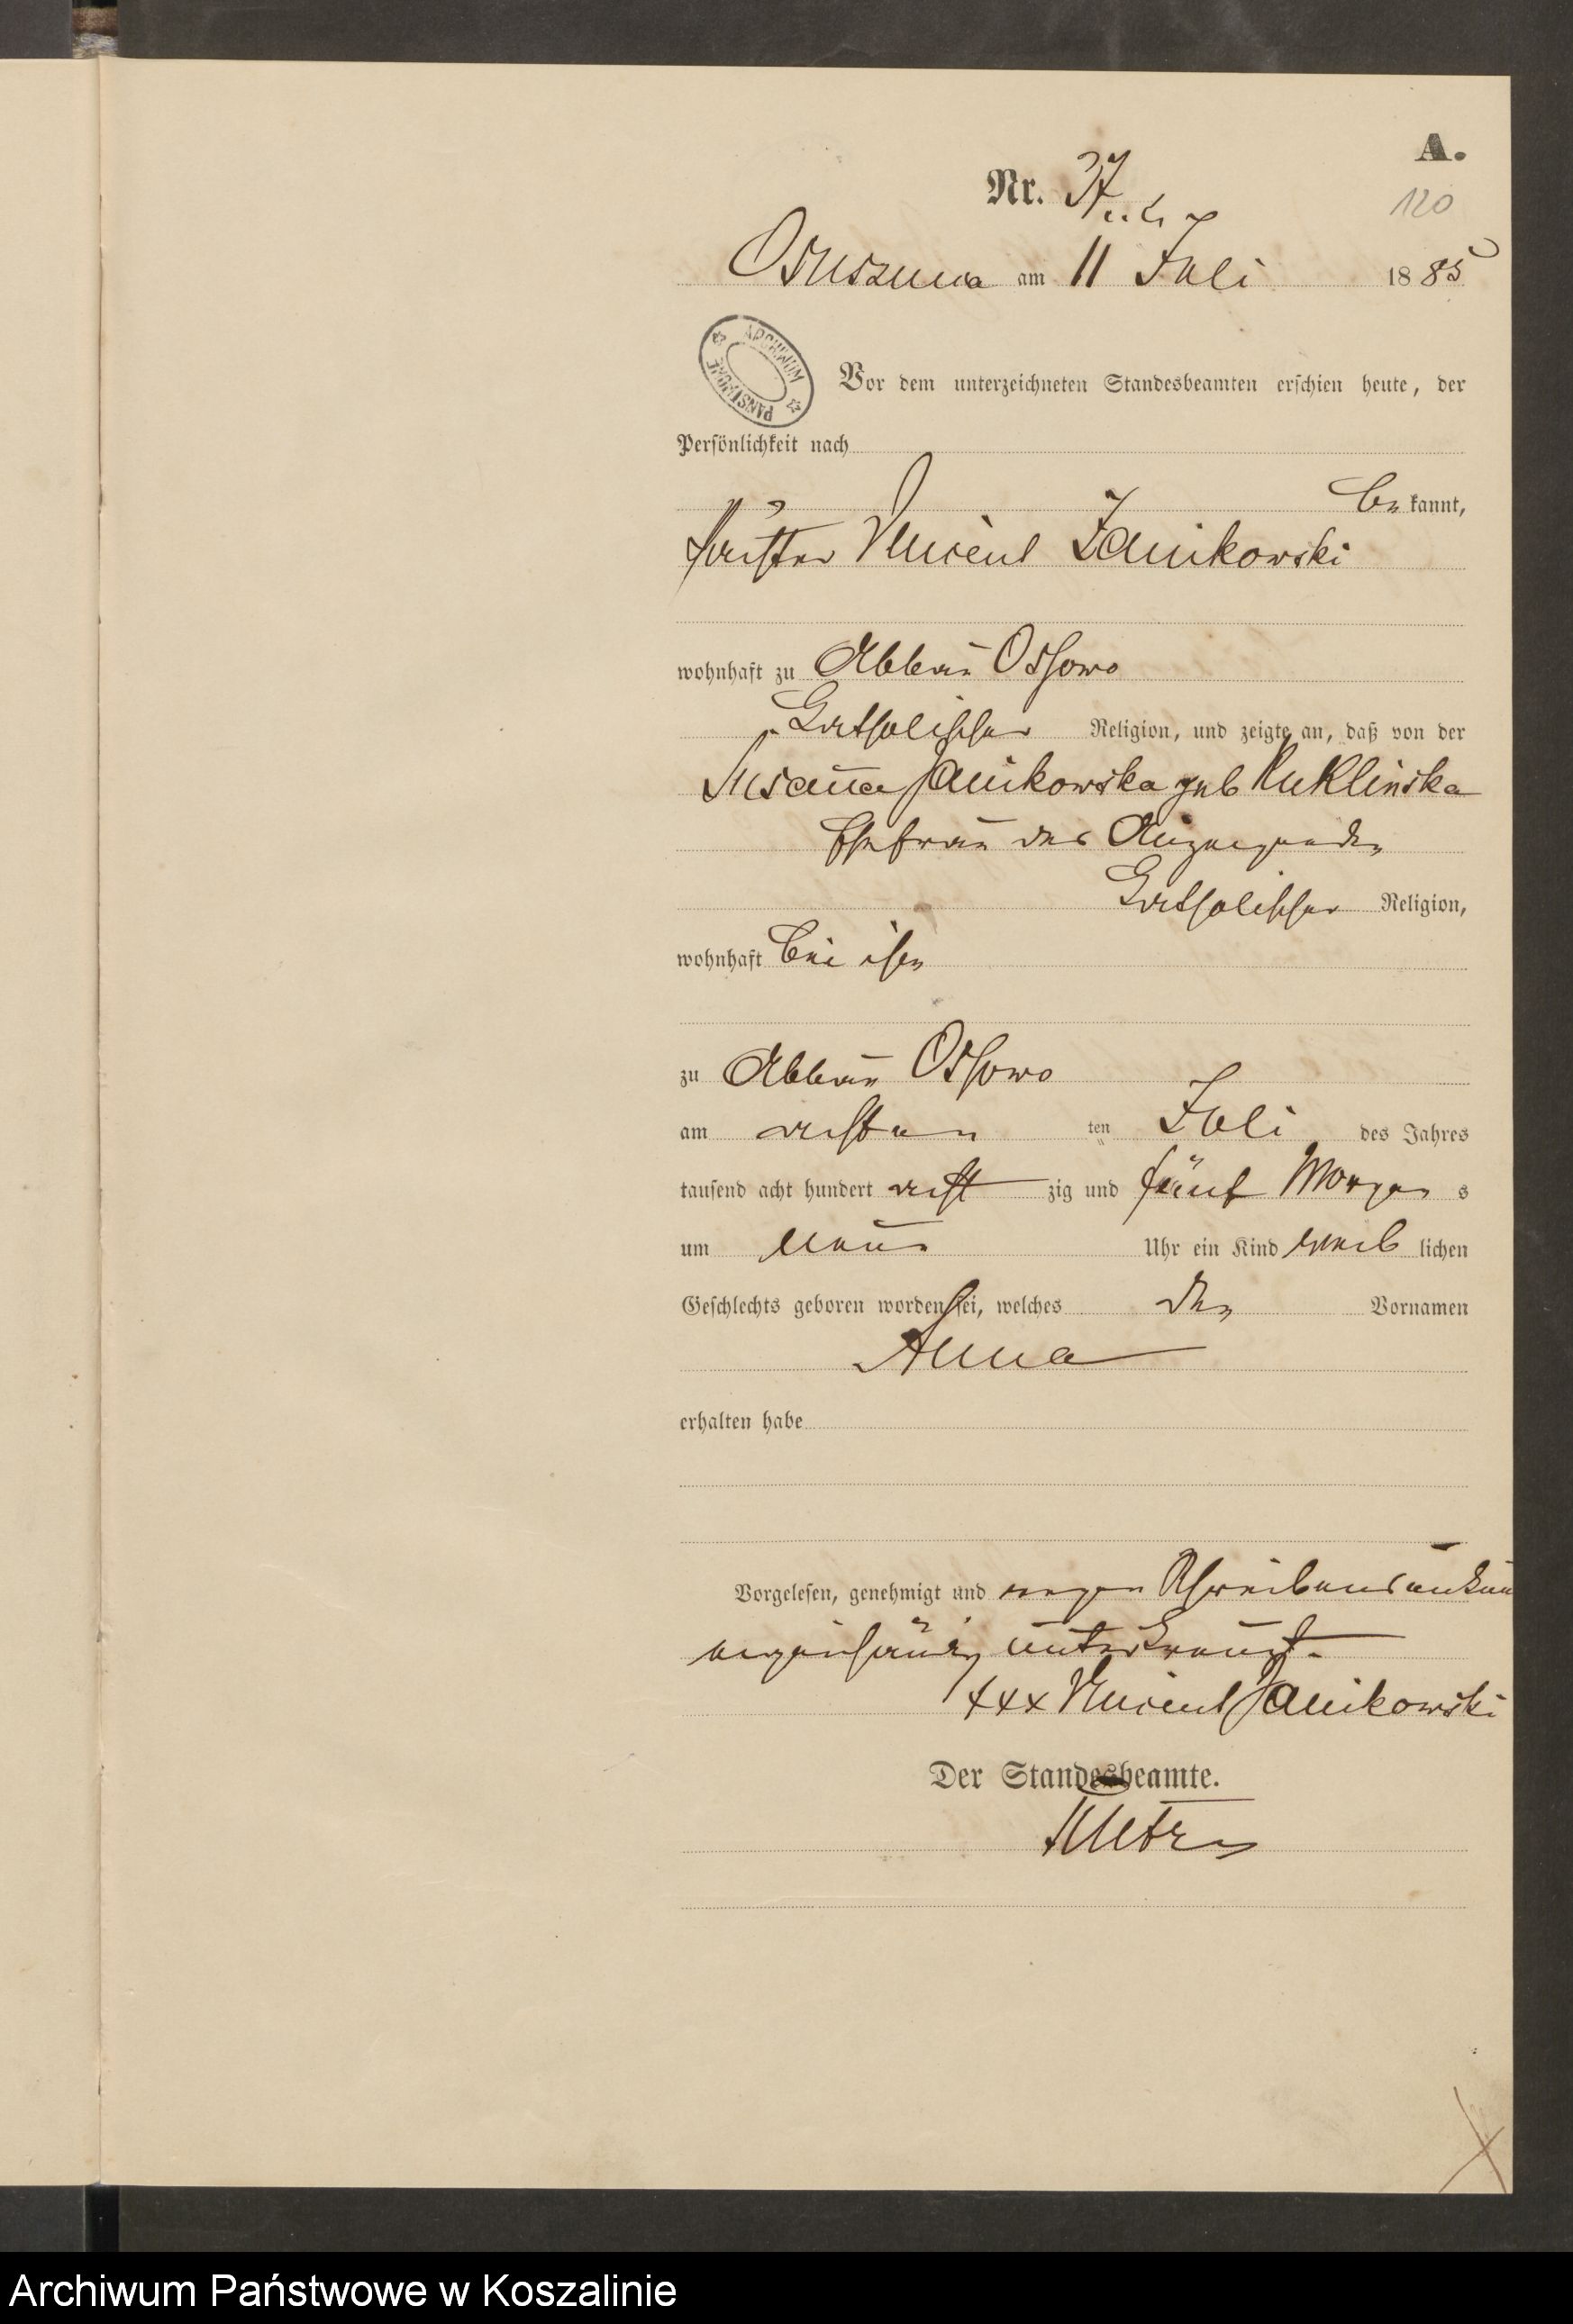 A.
Nr. 37
120
Osusznica am 11 Juli 1885
ARCHIWUM PAŃSTWOWE
Vor dem unterzeichneten Standesbeamten erschien heute, der
Persönlichkeit nach
be kannt,
Vincent Janikowski
wohnhaft zu Abbau Ossowo
Katholischer Religion, und zeigte an, daß von der
Susanna Janikowska geb Kuklinska
Ehefrau des Anzeigenden
Katholischer Religion,
wohnhaft bei ihm
zu Abbau Ossowo
am achten ten Juli des Jahres
tausend acht hundert acht zig und fünf Morgens
um neun Uhr ein Kind weib lichen
Geschlechts geboren worden sei, welches den Vornamen
Anna
erhalten habe
Vorgelesen, genehmigt und wegen Schreibensunkun
unterkreuzt.
xxx Vincent Janikowski
Der Standesbeamte.
Archiwum Państwowe w Koszalinie